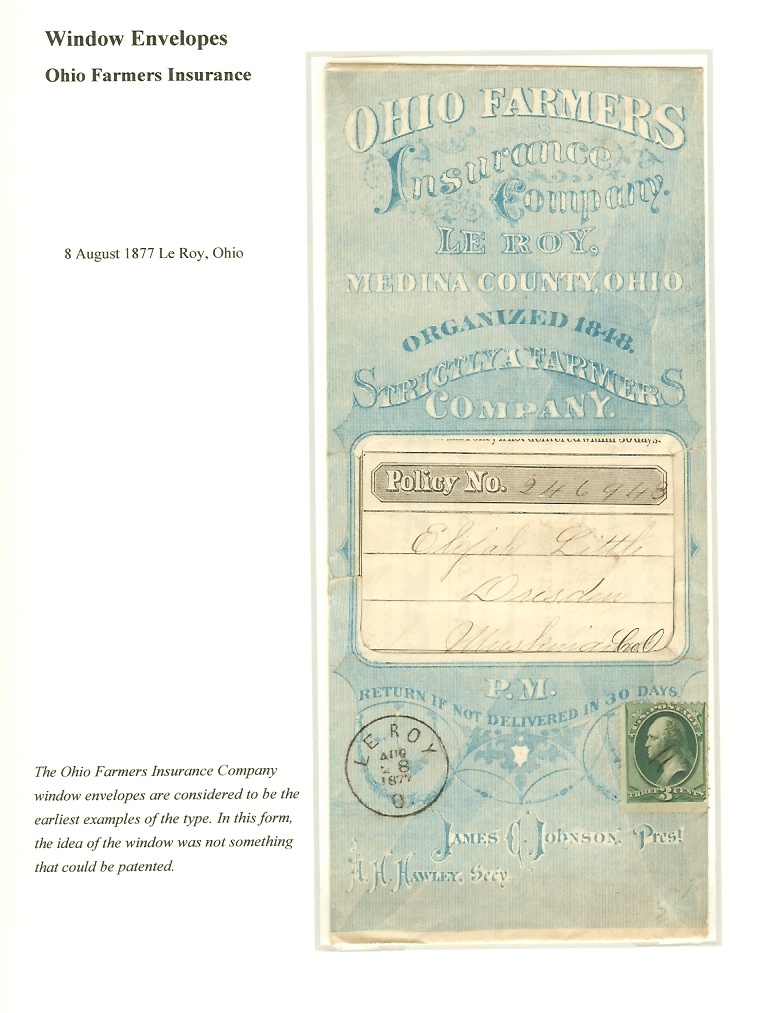 Window Envelopes
Ohio Farmers Insurance
8 August 1877 Le Roy, Ohio
OHIO FARMERS
Insurance
Company.
LE ROY,
MEDINA COUNTY, OHIO
ORGANIZED 1848.
STRICTLY A FARMERS
COMPANY.
if not delivered within 30 days.
Policy No. 246943
Elijah Little
Dresden
Co. O
P.M.
RETURN IF NOT DELIVERED IN 30 DAYS
LE ROY
AUG
28
1877
O.
U.S. POSTAGE
THREE 3 CENTS
JAMES C. JOHNSON, Pres!
A. H. HAWLEY, Secy.
The Ohio Farmers Insurance Company
window envelopes are considered to be the
earliest examples of the type. In this form,
the idea of the window was not something
that could be patented.